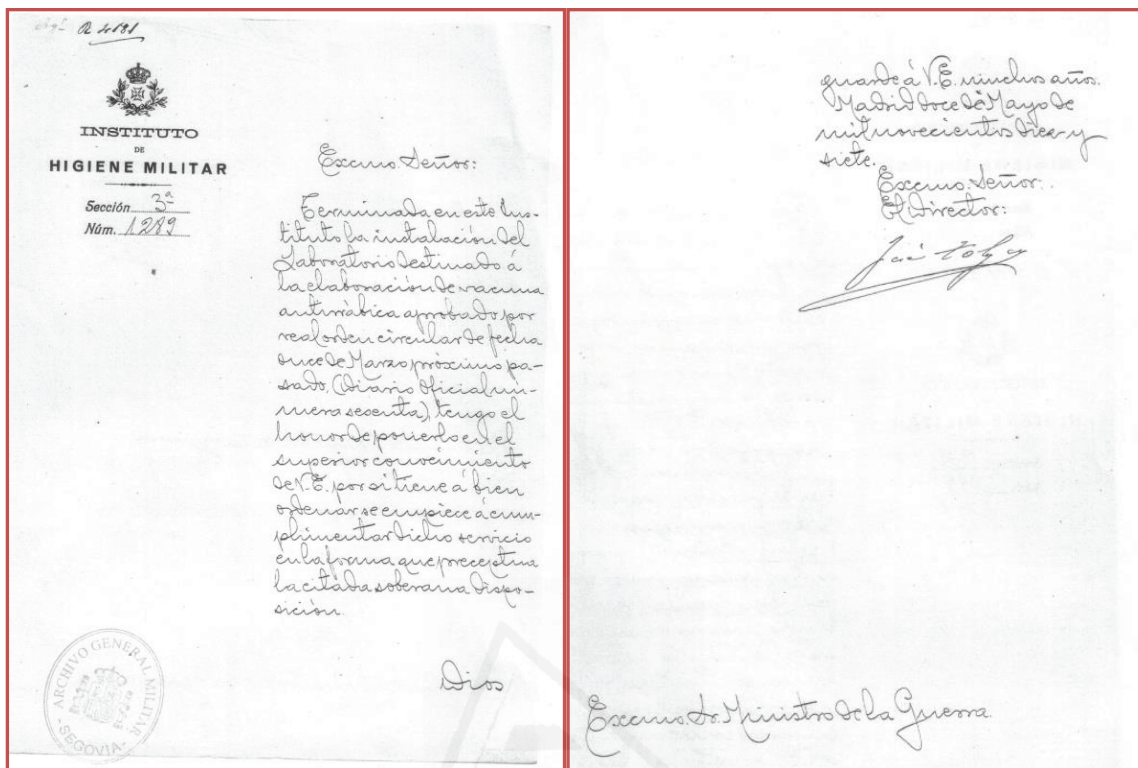 R 4181
INSTITUTO
DE
HIGIENE MILITAR
Sección 3ª
Núm. 1289
Excmo. Señor:
Terminada en este Ins-
tituto la instalación del
Laboratorio destinado á
la elaboración de vacuna
antirrábica aprobado por
real orden circular de fecha
once de Marzo próximo pa-
sado, (Diario Oficial nú-
mero sesenta), tengo el
honor de ponerlo en el
superior conocimiento
de V.E. por si tiene á bien
ordenar se empiece á cum-
plimentar dicho servicio
en la forma que preceptua
la citada soberana dispo-
sición.
Dios
ARCHIVO GENERAL MILITAR
- SEGOVIA -
guarde á V.E. muchos años.
Madrid doce de Mayo de
mil novecientos diez y
siete.
Excmo. Señor:
El Director:
Excmo. Sr. Ministro de la Guerra.